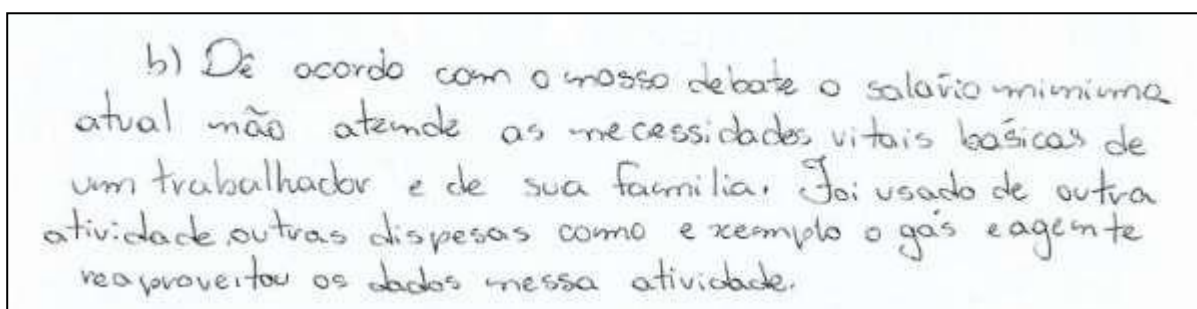 b) De acordo com o nosso debate o salário minimo
atual não atende as necessidades vitais básicas de
um trabalhador e de sua familia. Foi usado de outra
atividade outras dispesas como exemplo o gás e agente
reaproveitou os dados nessa atividade.